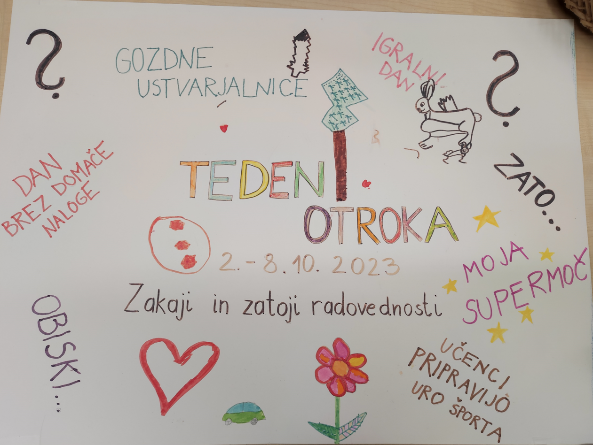 ?
GOZDNE
USTVARJALNICE
IGRALNI
DAN
?
DAN
BREZ DOMAČE
NALOGE
TEDEN
OTROKA
ZATO...
2.-8.10. 2023
MOJA
SUPERMOČ
Zakaji in zatoji radovednosti
OBISKI...
UČENCI
PRIPRAVIJO
URO ŠPORTA